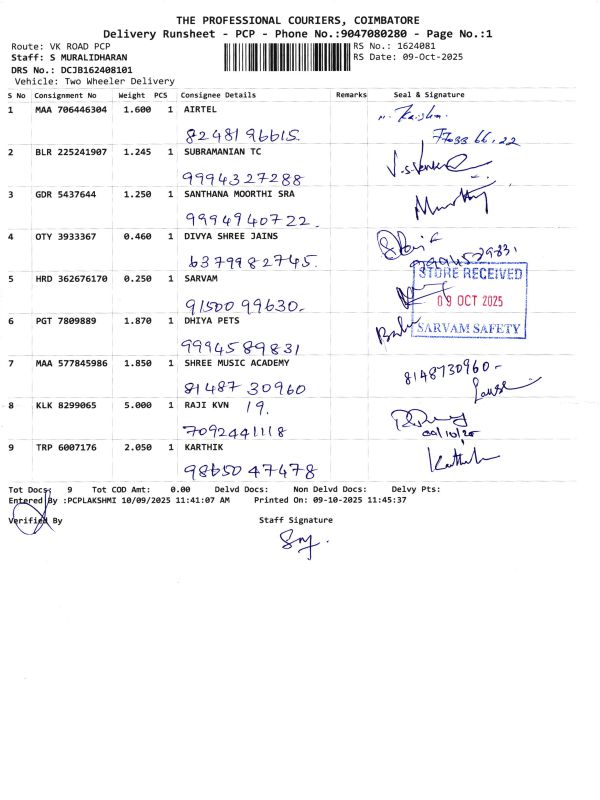 THE PROFESSIONAL COURIERS, COIMBATORE
Delivery Runsheet - PCP - Phone No.:9047080280 - Page No.:1
Route: VK ROAD PCP RS No.: 1624081
Staff: S MURALIDHARAN RS Date: 09-Oct-2025
DRS No.: DCJB162408101
Vehicle: Two Wheeler Delivery
S No Consignment No Weight PCS Consignee Details Remarks Seal & Signature
1 MAA 706446304 1.600 1 AIRTEL
8248196615.
77088 66.22
2 BLR 225241907 1.245 1 SUBRAMANIAN TC
9994327288
3 GDR 5437644 1.250 1 SANTHANA MOORTHI SRA
9994940722. Murthy
4 OTY 3933367 0.460 1 DIVYA SHREE JAINS
6379982745.
5 HRD 362676170 0.250 1 SARVAM STORE RECEIVED
9150099630. 09 OCT 2025
6 PGT 7809889 1.870 1 DHIYA PETS Babu SARVAM SAFETY
9994589831
7 MAA 577845986 1.850 1 SHREE MUSIC ACADEMY
8148730960 8148730960-
8 KLK 8299065 5.000 1 RAJI KVN 19.
7092441118 09/10/25
9 TRP 6007176 2.050 1 KARTHIK
9865047478 Karthik
Tot Docs: 9 Tot COD Amt: 0.00 Delvd Docs: Non Delvd Docs: Delvy Pts:
Entered By :PCPLAKSHMI 10/09/2025 11:41:07 AM Printed On: 09-10-2025 11:45:37
Verified By Staff Signature